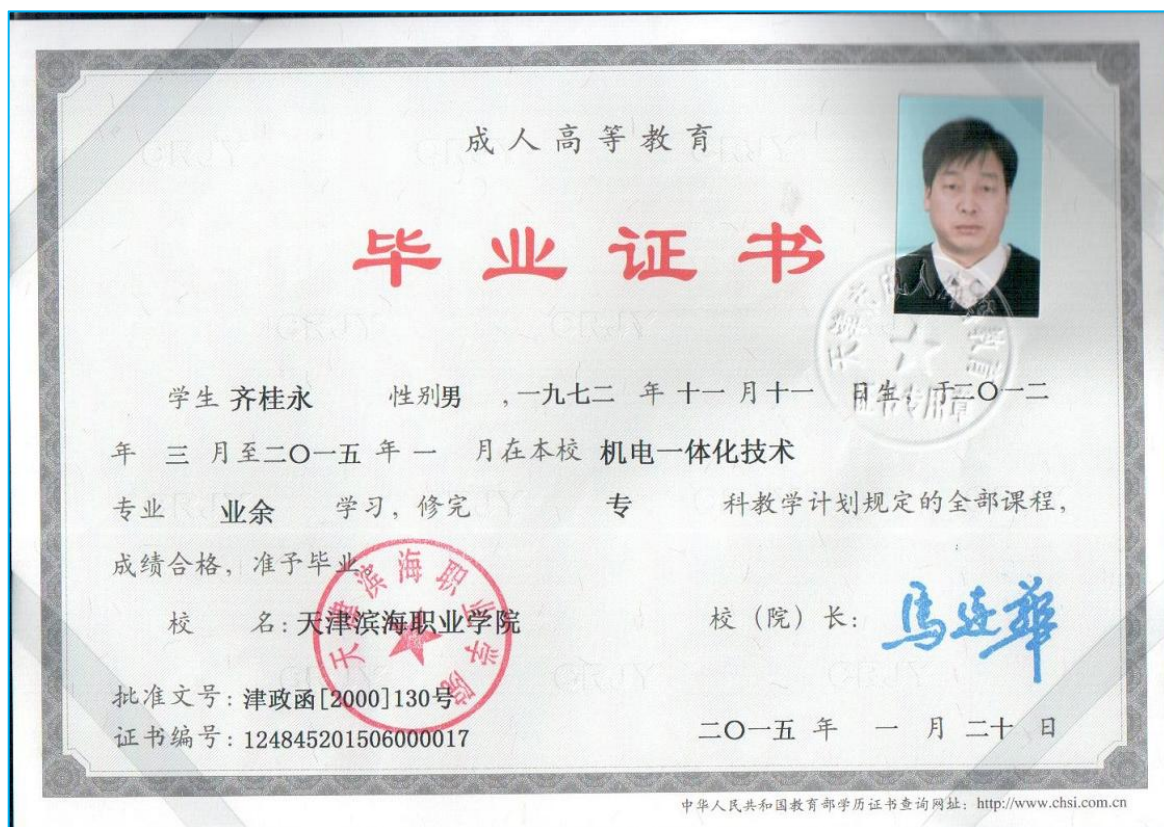 成人高等教育
毕业证书
学生 齐桂永 性别男 ,一九七二 年 十一 月 十一 日生, 于二〇一二
年 三 月至二〇一五 年 一 月在本校 机电一体化技术
专业 业余 学习, 修完 专 科教学计划规定的全部课程,
成绩合格, 准予毕业。
校 名: 天津滨海职业学院
校 (院) 长: 马连华
批准文号: 津政函[2000]130号
证书编号: 124845201506000017
二〇一五 年 一 月 二十 日
天津滨海职业学院
证书专用章
中华人民共和国教育部学历证书查询网址: http://www.chsi.com.cn